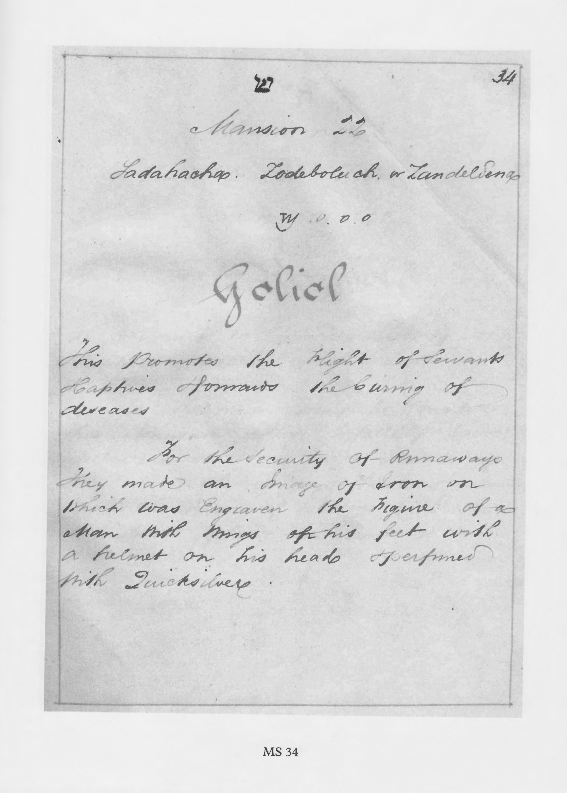 34
Mansion 22
Sadahacha. Zodeboluch. or Zandeldena
♑ 0. 0. 0
Goliol
This Promotes the flight of Servants
& Captives & forwards the Curing of
deseases
For the Security of Runaways
They made an Image of Iron on
Which was Engraven the Figure of a
Man With Wings on his feet with
a helmet on his head & perfumed
With Quicksilver.
MS 34